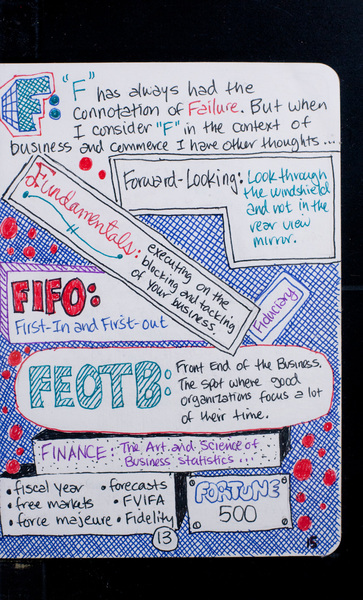 F: "F" has always had the
connotation of Failure. But when
I consider "F" in the context of
business and commerce I have other thoughts...
Forward-Looking: Look through
the windshield
and not in the
rear view
mirror.
Fundamentals: executing on the
blocking and tackling
of your business.
FIFO:
First-In and First-out
Fiduciary
FEOTB: Front End of the Business.
The spot where good
organizations focus a lot
of their time.
FINANCE: The Art and Science of
Business statistics...
• fiscal year • forecasts
• free markets • FVIFA
• force majeure • Fidelity
FORTUNE
500
13
15